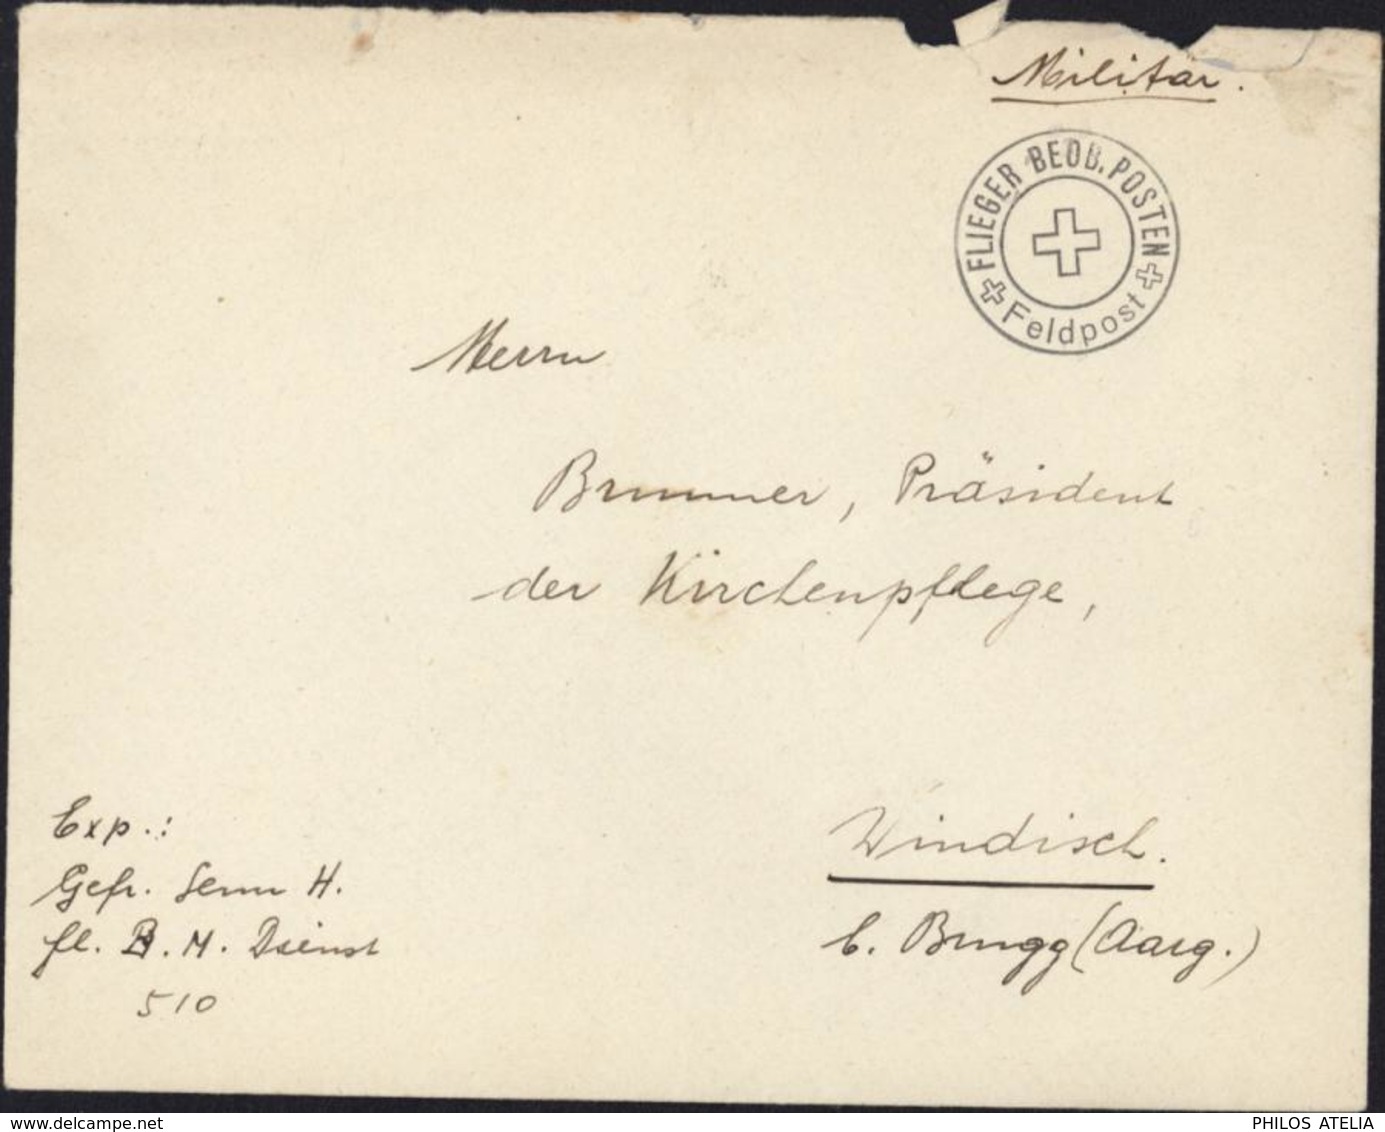 Militär.
FLIEGER BEOB. POSTEN
Feldpost
Herrn
Brunner, Präsident
der Kirchenpflege,
Windisch.
b. Brugg (Aarg.)
Exp.:
Gefr. Senn H.
fl. B. M. Dienst
510
www.delcampe.net
PHILOS ATELIA